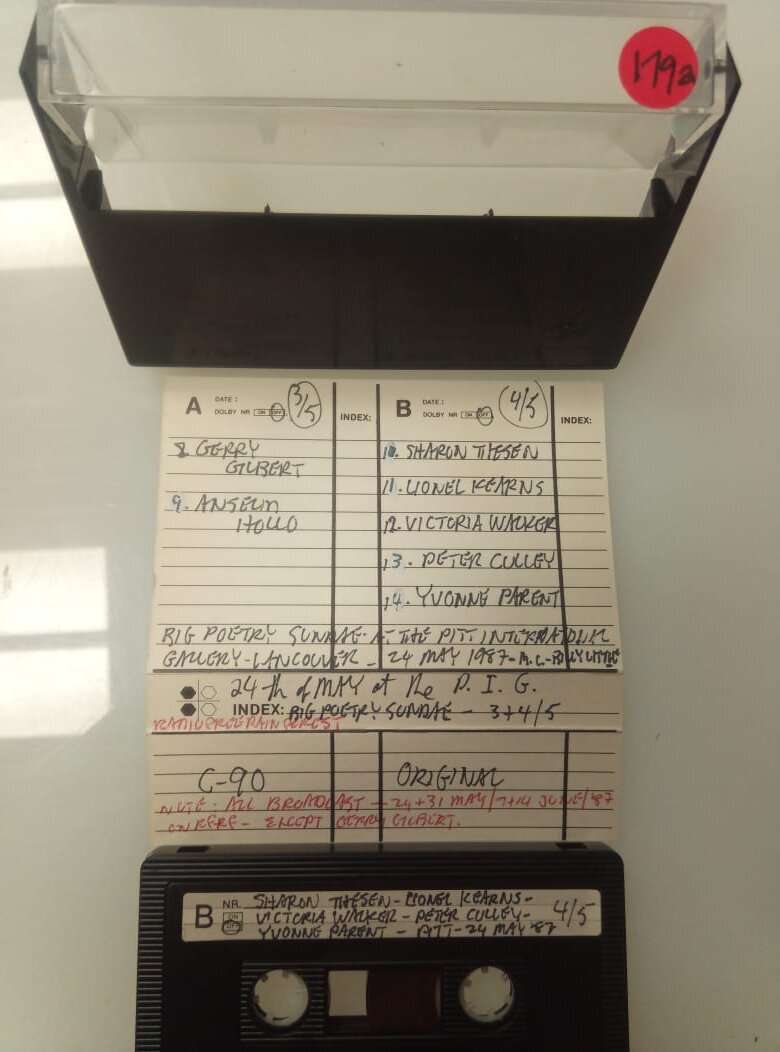 179a
A DATE :
DOLBY NR ON OFF 3/5
INDEX:
8. GERRY
GILBERT
9. ANSELM
HOLLO
B DATE :
DOLBY NR ON OFF 4/5
INDEX:
10. SHARON THESEN
11. LIONEL KEARNS
12. VICTORIA WALKER
13. PETER CULLEY
14. YVONNE PARENT
BIG POETRY SUNDAE - AT THE PITT INTERNATIONAL
GALLERY - VANCOUVER - 24 MAY 1987 - M.C. - BILLY LITTLE
24th of MAY at the P. I. G.
INDEX: BIG POETRY SUNDAE - 3+4/5
RADIOFREERAINFOREST
C-90 ORIGINAL
NOTE: ALL BROADCAST - 24+31 MAY/7+14 JUNE/'87
ON RFRF - EXCEPT GERRY GILBERT.
B NR. ON OFF
SHARON THESEN - LIONEL KEARNS -
VICTORIA WALKER - PETER CULLEY -
YVONNE PARENT - PITT - 24 MAY '87
4/5